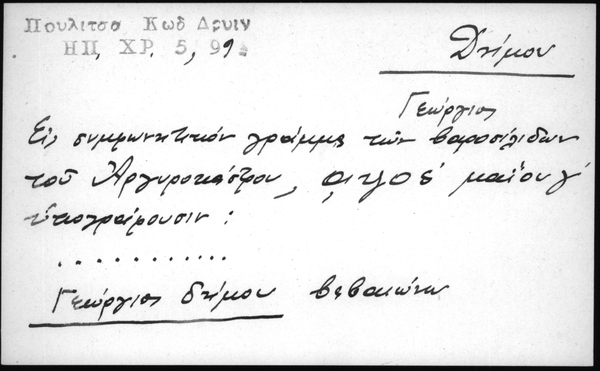 Πουλιτσα Κωδ Δρυιν
ΗΠ, ΧΡ. 5, 99
Δήμου
Γεώργιος
Εἰς συμφωνητικόν γράμμα τῶν βαροσιλιδων
τοῦ Ἀργυροκάστρου, αψλος μαΐου γ΄
ὑπογράφουσιν :
. . . . . . . . . . . .
Γεώργιος δήμου βεβαιώνω